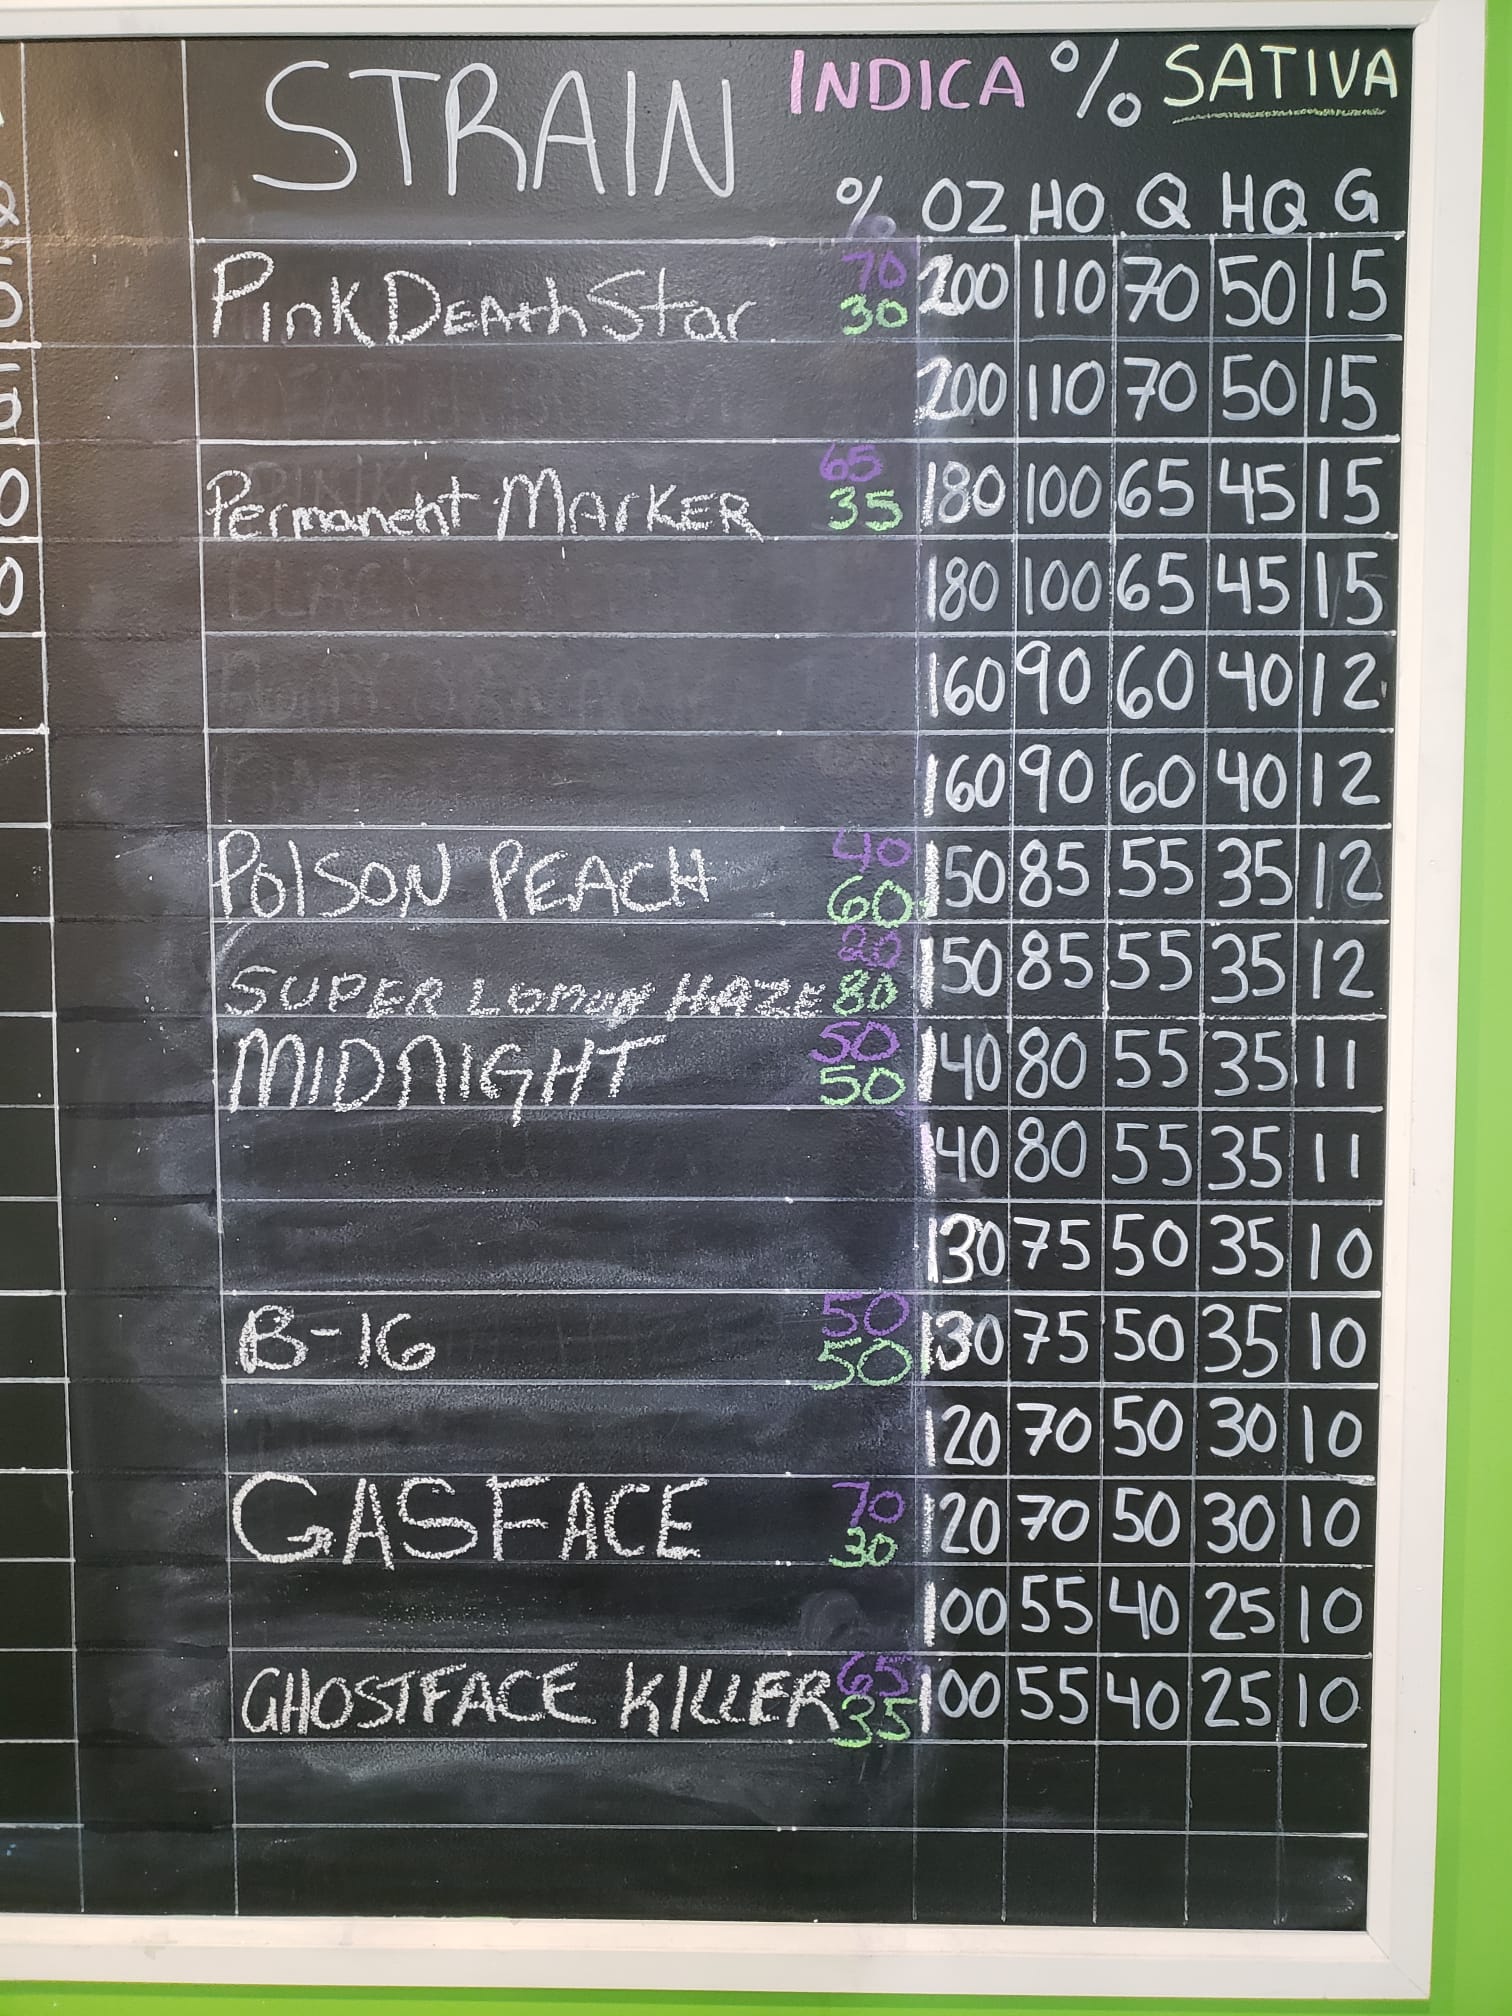 STRAIN INDICA % SATIVA
% OZ HO Q HQ G
Pink Death Star 70 30 200 110 70 50 15
200 110 70 50 15
Permanent Marker 65 35 180 100 65 45 15
180 100 65 45 15
160 90 60 40 12
160 90 60 40 12
POISON PEACH 40 60 150 85 55 35 12
SUPER LEMON HAZE 20 80 150 85 55 35 12
MIDNIGHT 50 50 140 80 55 35 11
140 80 55 35 11
130 75 50 35 10
B-16 50 50 130 75 50 35 10
120 70 50 30 10
GASFACE 70 30 120 70 50 30 10
100 55 40 25 10
GHOSTFACE KILLER 65 35 100 55 40 25 10